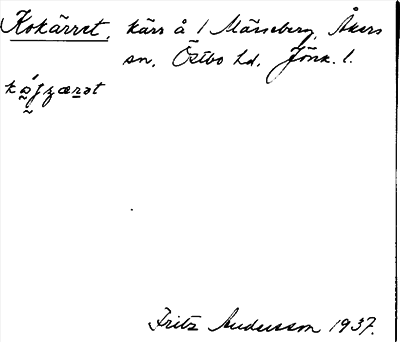 Kokärret, kärr å 1 Mässeberg, Åkers
sn, Östbo hd, Jönk. l.
Fritz Andersson 1937.